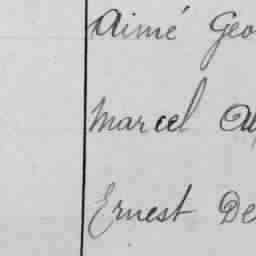 Aimé Geo
Marcel
Ernest De